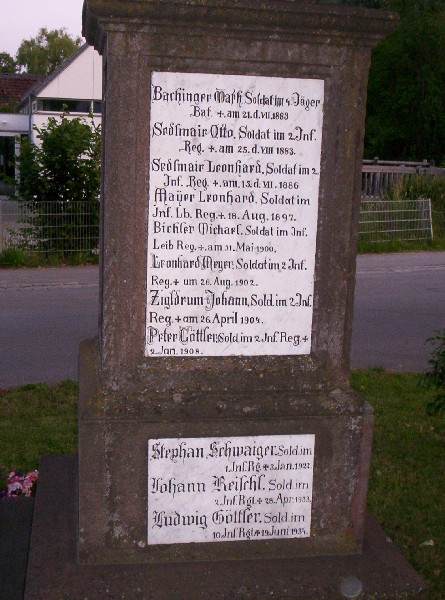 Bachinger Math. Soldat im 4. Jäger
Bat. +. am 21. d. VII. 1883
Sedlmair Otto, Soldat im 2. Inf.
Reg. +. am 25. d. VIII. 1883.
Sedlmair Leonhard, Soldat im 2.
Inf. Reg. +. am. 15. d. VII. 1886
Mayer Leonhard, Soldat im
Inf. Lb. Reg. + 18. Aug. 1897.
Bichler Michael, Soldat im Inf.
Leib Reg. +. am 31. Mai 1900.
Leonhard Meyer. Soldat im 2. Inf.
Reg. + um 26. Aug. 1902.
Zigldrum Johann, Sold. im 2 Inf.
Reg. + am 26. April 1904.
Peter Göttler, Sold. im 2. Inf. Reg. +
2. Jan. 1908.
Stephan Schwaiger. Sold. im
1. Inf. Rg. + 2. Jan. 1922.
Johann Reischl. Sold. im
2. Inf. Rgt. + 28. Apr. 1933.
Ludwig Göttler. Sold. im
10. Inf. Rgt. + 19. Juni 1934.